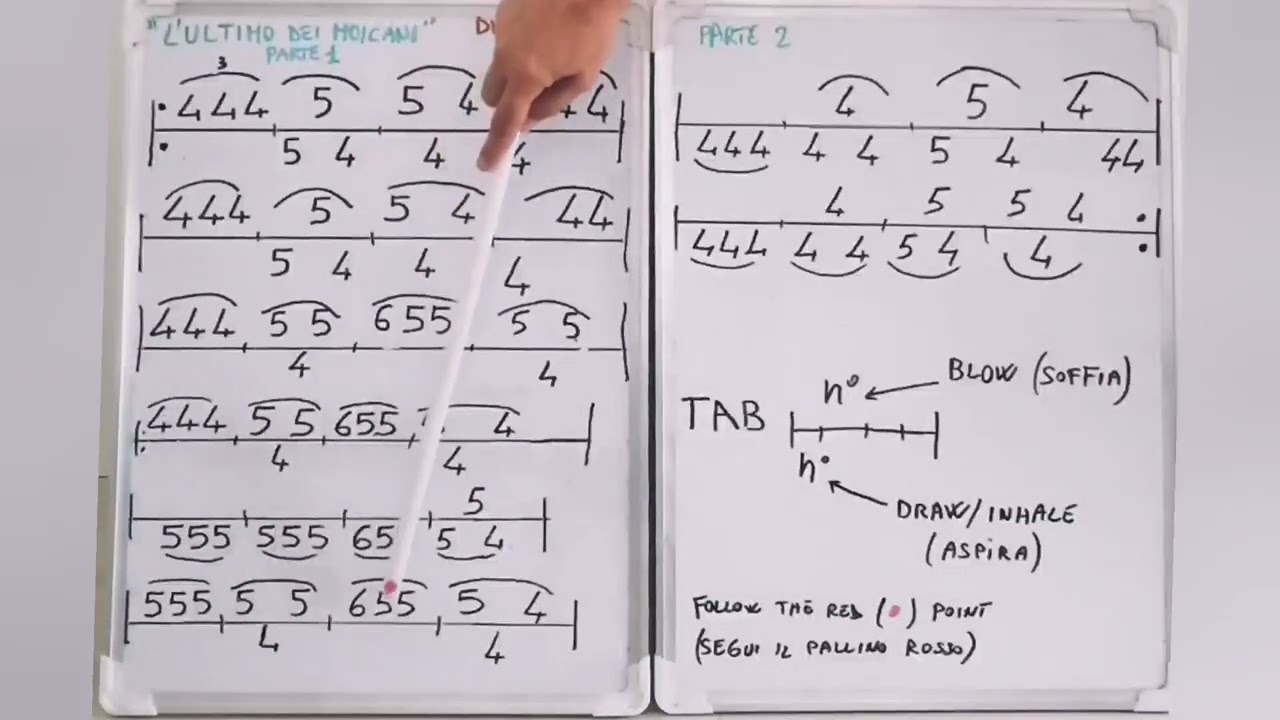 "L'ULTIMO DEI MOICANI"
PARTE 1
3
444 5 5 4 4
5 4 4 4
444 5 5 4 44
5 4 4 4
444 5 5 655 5 5
4 4
444 5 5 655 4
4 4
5
555 555 65 5 4
555 5 5 655 5 4
4 4
PARTE 2
4 5 4
444 4 4 5 4 44
4 5 5 4
444 4 4 5 4 4
n° BLOW (SOFFIA)
TAB
n°
DRAW/INHALE
(ASPIRA)
FOLLOW THE RED ( ) POINT
(SEGUI IL PALLINO ROSSO)